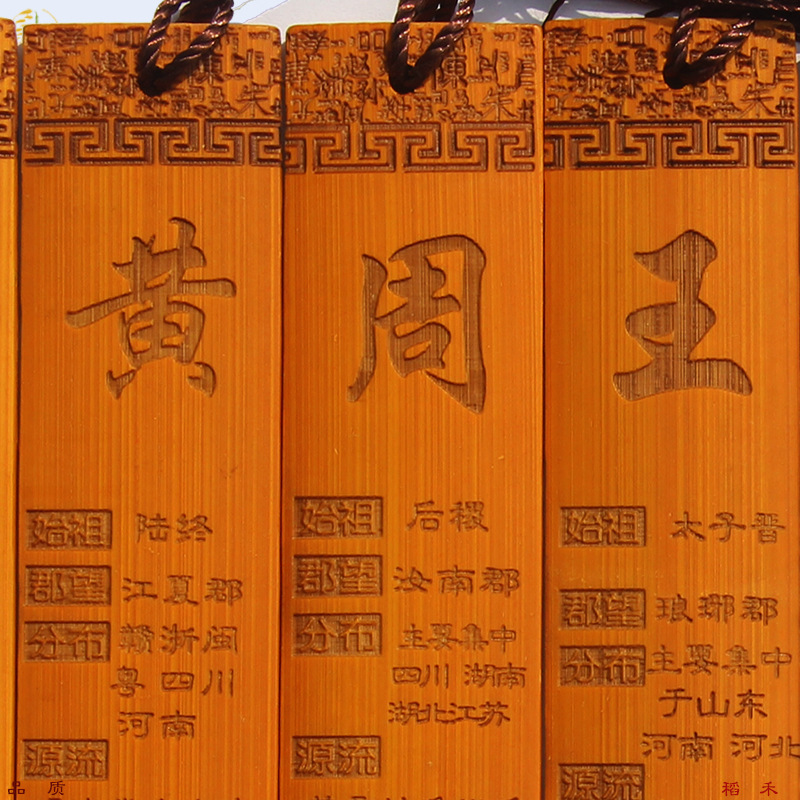 黄
始祖 陆终
郡望 江夏郡
分布 赣浙闽
粤四川
河南
源流
周
始祖 后稷
郡望 汝南郡
分布 主要集中
四川 湖南
湖北江苏
源流
王
始祖 太子晋
郡望 琅琊郡
分布 主要集中
于山东
河南 河北
源流
品质
稻禾